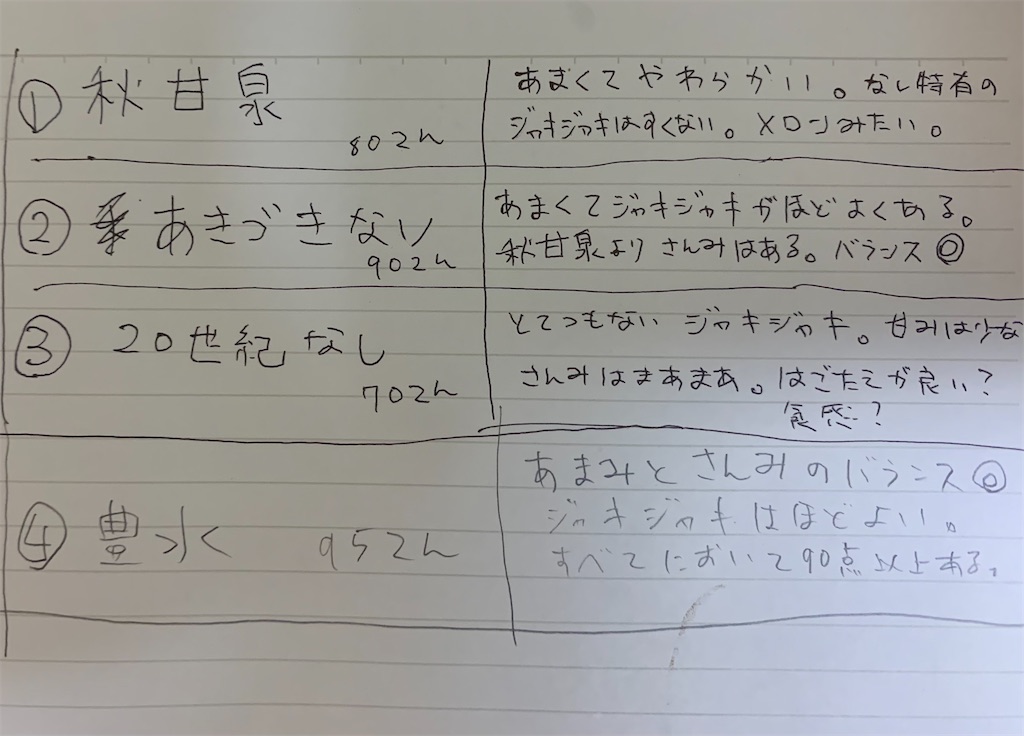 ① 秋甘泉
802ん
あまくてやわらかい。なし特有の
ジャキジャキはすくない。メロンみたい。
② あきづきなし
902ん
あまくてジャキジャキがほどよくある。
秋甘泉よりさんみはある。バランス◎
③ 20世紀なし
702ん
とてつもないジャキジャキ。甘みは少な
さんみはまあまあ。はごたえが良い?
食感?
④ 豊水 952ん
あまみとさんみのバランス◎
ジャキジャキはほどよい。
すべてにおいて90点以上ある。